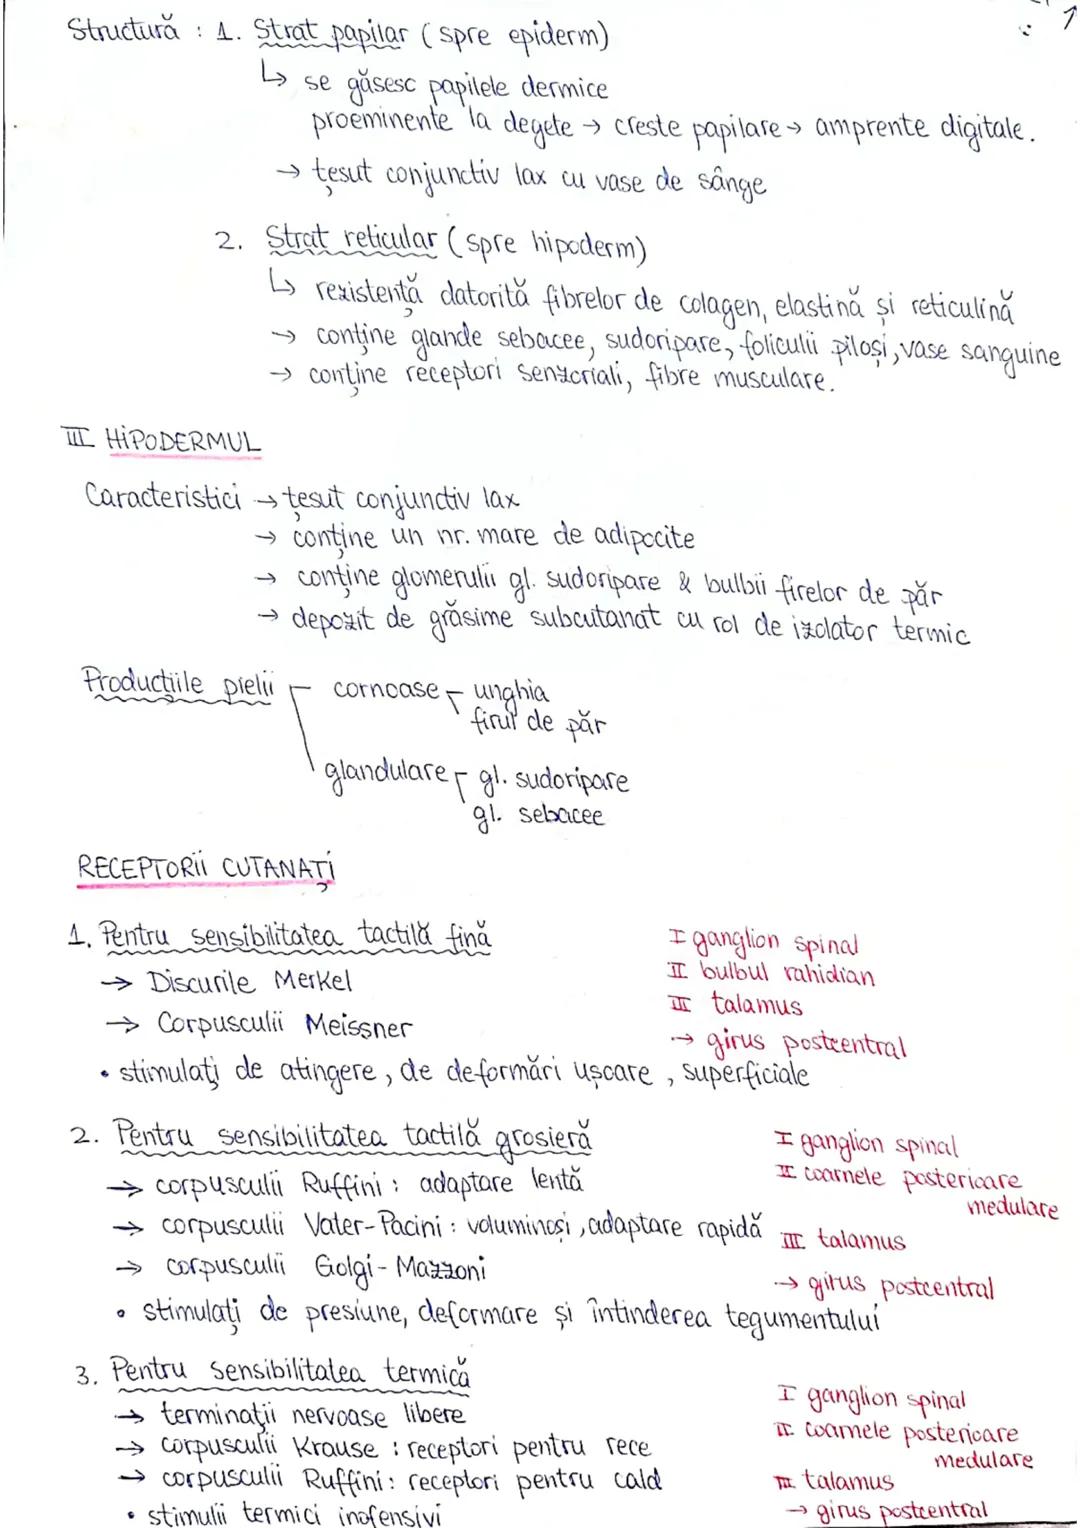 Structură : 1. Strat papilar (spre epiderm)
↳ se găsesc papilele dermice
proeminente la degete → creste papilare → amprente digitale.
→ țesut conjunctiv lax cu vase de sânge
2. Strat reticular (spre hipoderm)
↳ rezistență datorită fibrelor de colagen, elastină și reticulină
→ conține glande sebacee, sudoripare, foliculii piloși, vase sanguine
→ conține receptori senzoriali, fibre musculare.
III HIPODERMUL
Caracteristici → țesut conjunctiv lax
→ conține un nr. mare de adipocite
→ conține glomerulii gl. sudoripare & bulbii firelor de păr
→ depozit de grăsime subcutanat cu rol de izolator termic
Producțiile pielii cornoase unghia
firul de păr
glandulare gl. sudoripare
gl. sebacee
RECEPTORII CUTANAȚI
1. Pentru sensibilitatea tactilă fină
I ganglion spinal
→ Discurile Merkel
II bulbul rahidian
→ Corpusculii Meissner
III talamus
→ girus postcentral
• stimulați de atingere, de deformări ușoare, superficiale
2. Pentru sensibilitatea tactilă grosieră
I ganglion spinal
→ corpusculii Ruffini : adaptare lentă
II coarnele posterioare
medulare
→ corpusculii Vater-Pacini : voluminoși, adaptare rapidă
III talamus
→ corpusculii Golgi-Mazzoni
→ girus postcentral
• stimulați de presiune, deformare și întinderea tegumentului
3. Pentru sensibilitatea termică
I ganglion spinal
→ terminații nervoase libere
II coarnele posterioare
→ corpusculii Krause : receptori pentru rece
medulare
→ corpusculii Ruffini : receptori pentru cald
III talamus
• stimulii termici inofensivi
→ girus postcentral